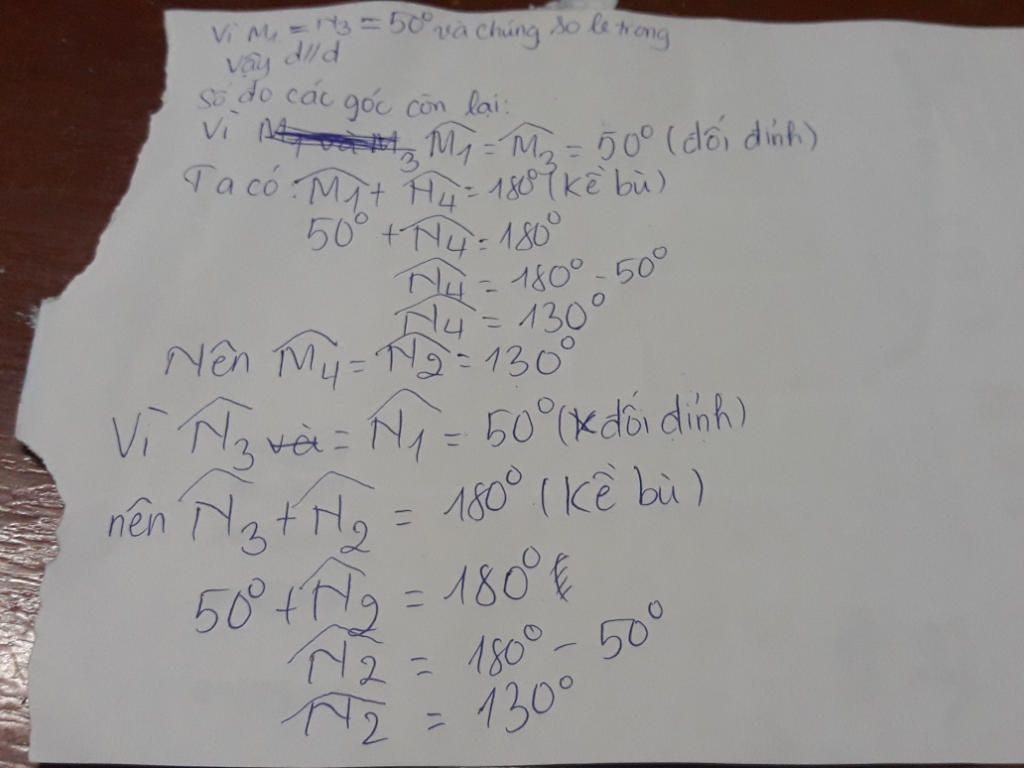 Vì M₁ = N₃ = 50° và chúng so le trong
vậy d//d
Số đo các góc còn lại:
Vì M̂₁ = M̂₃ = 50° (đối đỉnh)
Ta có: M̂₁ + N̂₄ = 180° (kề bù)
50° + N̂₄ = 180°
N̂₄ = 180° - 50°
N̂₄ = 130°
Nên M̂₄ = N̂₂ = 130°
Vì N̂₃ = N̂₁ = 50° (đối đỉnh)
nên N̂₃ + N̂₂ = 180° (kề bù)
50° + N̂₂ = 180°
N̂₂ = 180° - 50°
N̂₂ = 130°